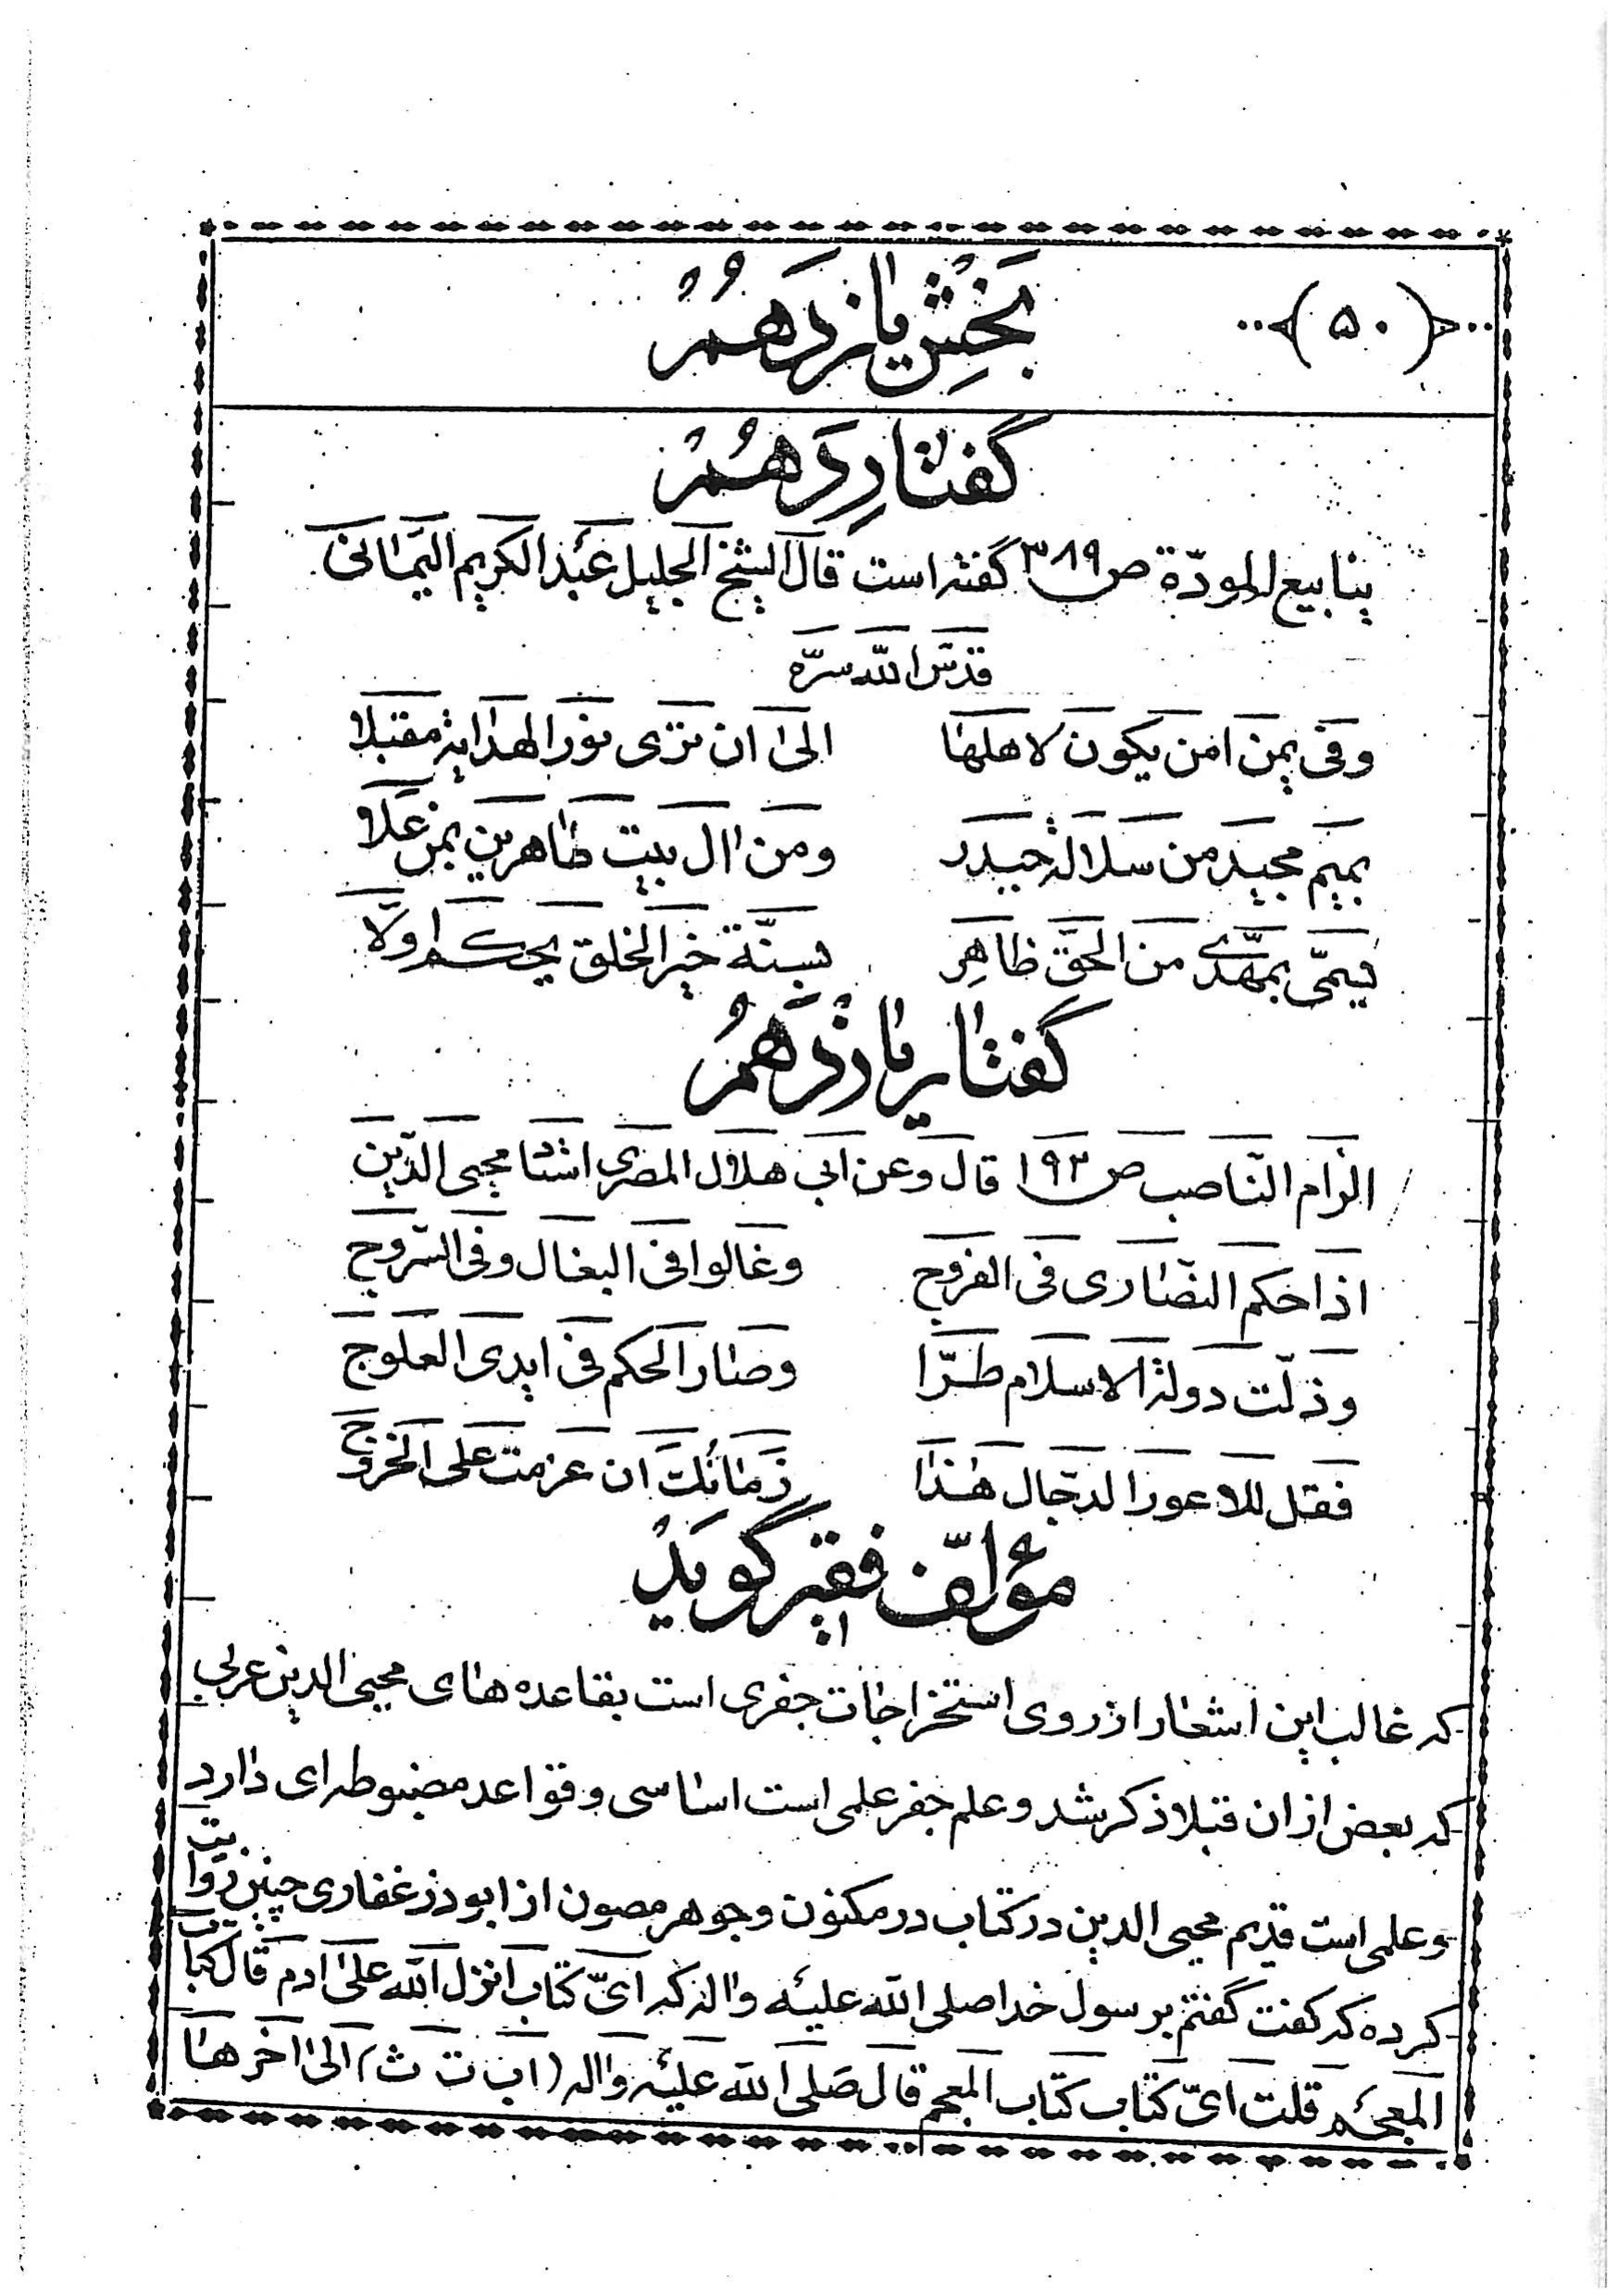 ﴿۵۰﴾
بخش یازدهم
گفتار دهم
ینابیع المودّة ص ۳۸۹ گفته است قال الشیخ الجلیل عبد الکریم الیمانی
قدّس اللّه سرّه
وفی یمن امن یکون لاهلها الیٰ ان تری نور الهدایة مقبلا
بمیم مجید من سلالة حیدر ومن اٰل بیت طاهرین بمن علا
یسمّی بمهدیّ من الحقّ ظاهر بسنّة خیر الخلق یحکم اوّلا
گفتار یازدهم
الزام النّاصب ص ۱۹۳ قال وعن ابی هلال المصری اشتا محیی الدّین
اذا حکم النّصاری فی الفروج وغالوا فی البغال وفی السّروج
وذلّت دولة الاسلام طرّا وصار الحکم فی ایدی العلوج
فقل للاعور الدجّال هٰذا زمانک ان عزمت علی الخروج
مؤلّف فقیر گوید
که غالب این اشعار از روی استخراجات جفری است بقاعده های محیی الدین عربی
که بعض از ان قبلا ذکر شد و علم جفر علمی است اساسی و قواعد مضبوطه ای دارد
و علمی است قدیم محیی الدین در کتاب در مکنون و جوهر مصون از ابوذر غفاری چنین روایت
کرده که گفت گفتم بر سول خدا صلی اللّه علیه واٰله که ایّ کتاب انزل اللّه علیٰ ادم قال کتاب
المعجم قلت ایّ کتاب کتاب المعجم قال صلی اللّه علیه واٰله (اب ت ث) الیٰ اٰخرها